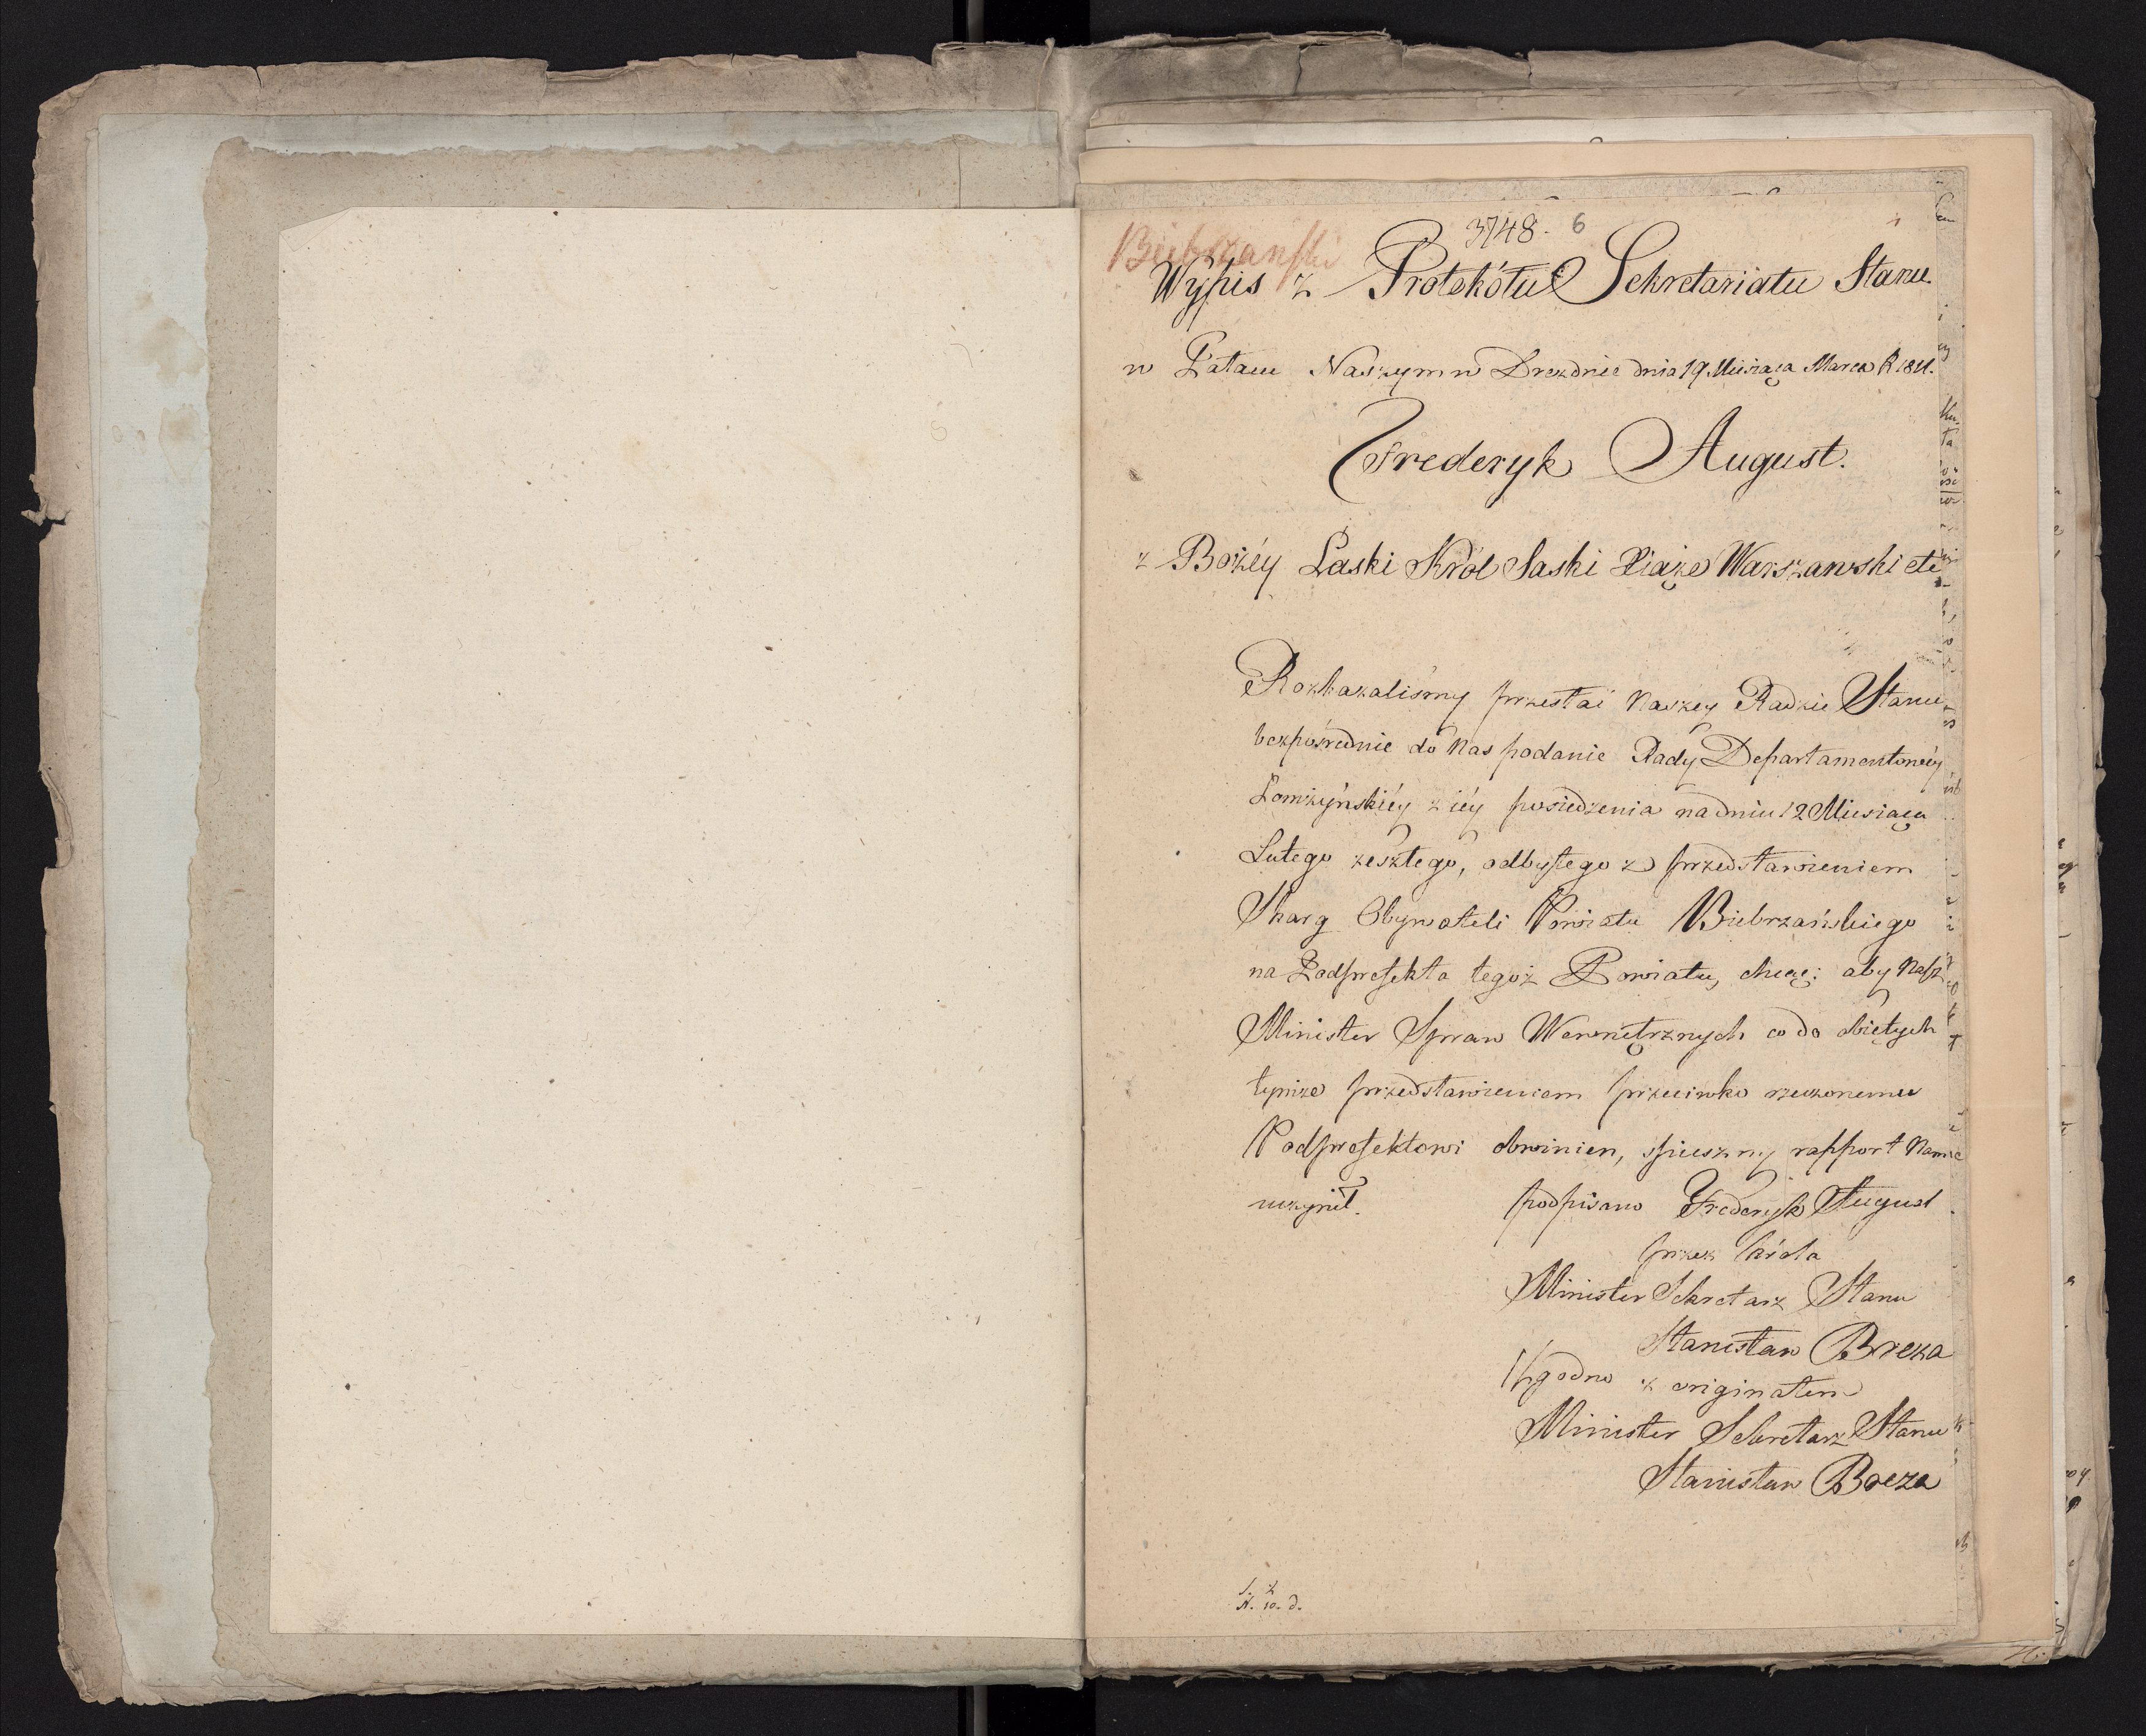 3748. 6
Biebrzański
Wypis z Protokółu Sekretariatu Stanu.
w Pałacu Naszym w Dreznie dnia 19 Miesiąca Marca R 1811.
Frederyk August.
z Bożéy Łaski Król Saski Xiąże Warszawski etc
Rozkazaliśmy przesłać Naszey Radzie Stanu
bezpośrednie do Nas podanie Rady Departamentowéy
Łomżyńskiéy z iéy posiedzenia na dniu 12 Miesiąca
Lutego zeszłego, odbytego z przedstawieniem
Skarg Obywateli Powiatu Biebrzańskiego
na Podprefekta tegoż Powiatu, chcąc: aby Nasz
Minister Spraw Wewnętrznych co do obiętych
tymże przedstawieniem przeciwko rzeczonemu
Podprefektowi obwinien, spieszny rapport Nam
uczynił. podpisano Frederyk August.
przez Króla
Minister Sekretarz Stanu
Stanisław Breza
Zgodno z originałem
Minister Sekretarz Stanu
Stanisław Breza